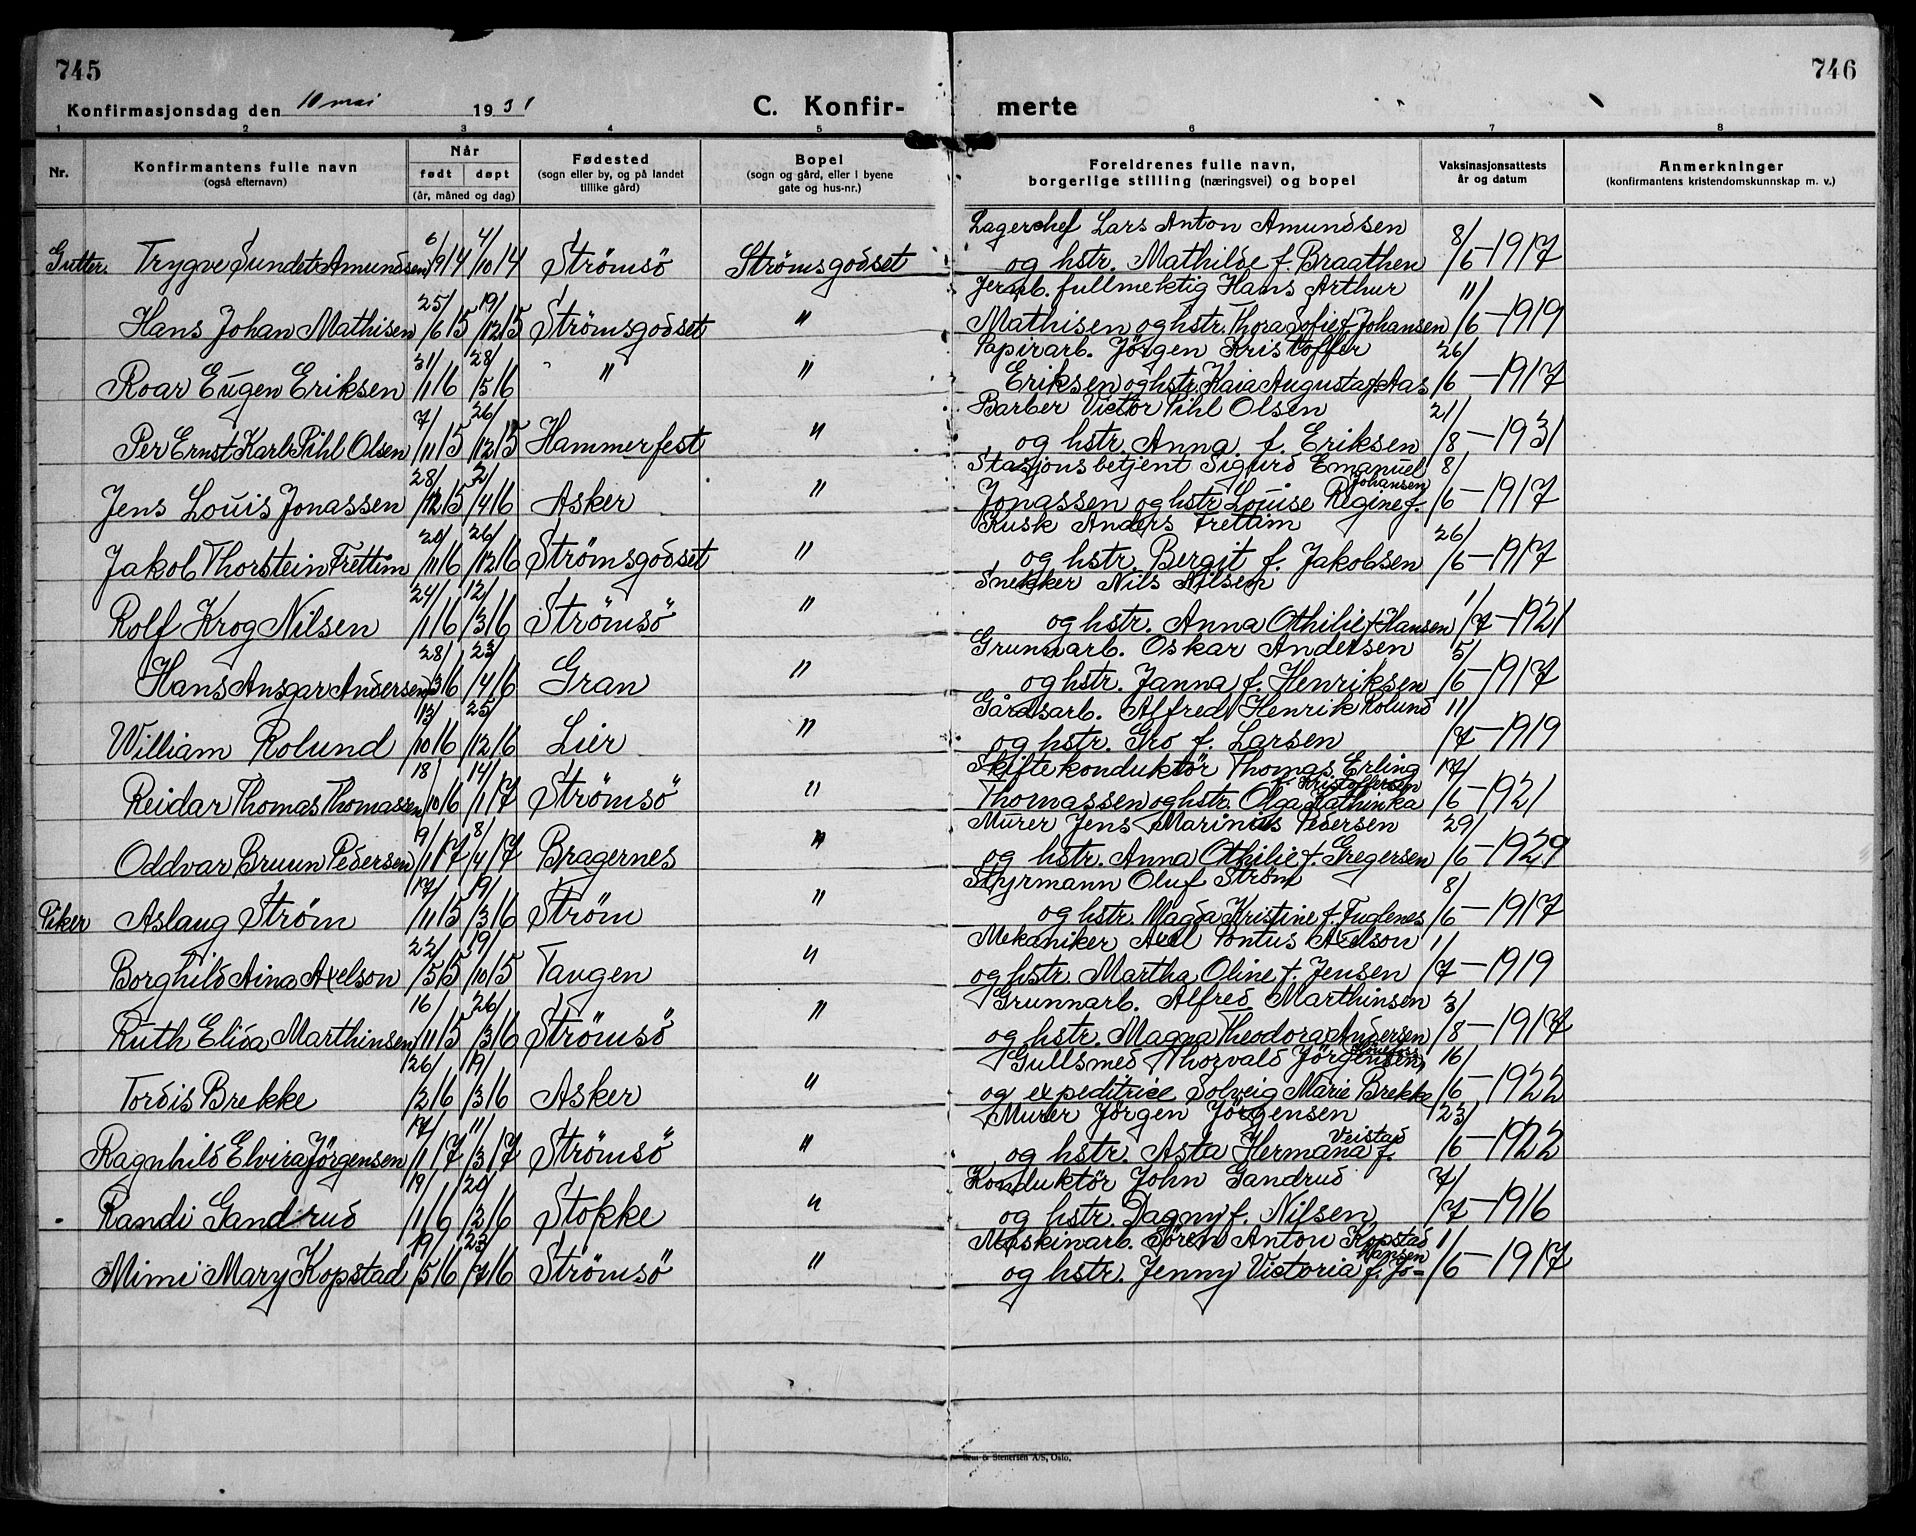 745
746
Konfirmasjonsdag den 10 mai 1931
C. Konfir- merte
1 2 3 4 5 6 7 8
Nr.
Konfirmantens fulle navn
(også efternavn)
Når
født døpt
(år, måned og dag)
Fødested
(sogn eller by, og på landet
tillike gård)
Bopel
(sogn og gård, eller i byene
gate og hus-nr.)
Foreldrenes fulle navn,
borgerlige stilling (næringsvei) og bopel
Vaksinasjonsattests
år og datum
Anmerkninger
(konfirmantens kristendomskunnskap m. v.)
6/ 4/ Lagerchef Lars Anton Amundsen 8/
Gutter. Trygve Sundet Amundsen /914 /1014 Strömsö Strömsgodset og hstr. Mathilde f. Braathen /6-1917
25/ 19/ Jernb. fullmektig Hans Arthur 11/
Hans Johan Mathisen /615 /1215 Strömsgodset " Mathisen og hstr. Thora Sofie f. Johansen /6-1919
31/ 28/ Papirarb. Jörgen Kristoffer 26/
Roar Eugen Eriksen /116 /516 " " Eriksen og hstr. Kaia Augusta f. Aas /6-1917
7/ 26/ Barber Victor Pihl Olsen 21/
Per Ernst Karl Pihl Olsen /1115 /1215 Hammerfest " og hstr. Anna f. Eriksen /8-1931
28/ 2/ Stasjonsbetjent Sigurd Emanuel 8/
Johansen
Jens Louis Jonassen /1215 /416 Asker " Jonassen og hstr. Louise Regine f. /6-1917
20/ 26/ Kusk Anders Frettim 26/
Jakob Thorstein Frettim /1116 /1216 Strömsgodset " og hstr. Bergit f. Jakobsen /6-1917
24/ 12/ Snekker Nils Nilsen 1/
Rolf Krog Nilsen /116 /316 Strömsö " og hstr. Anna Othilie f. Hansen /7-1921
28/ 23/ Grunnarb. Oskar Andersen 5/
Hans Ansgar Andersen /316 /416 Gran " og hstr. Janna f. Henriksen /6-1917
13/ 25/ Gårdsarb. Alfred Henrik Rolund 11/
William Rolund /1016 /1216 Lier " og hstr. Gro f. Larsen /7-1919
18/ 14/ Skiftekonduktör Thomas Erling 17/
f. Kristoffersen
Reidar Thomas Thomassen /1016 /117 Strömsö " Thomassen og hstr. Olga Kathinka /6-1921
9/ 8/ Murer Jens Marinus Pedersen 29/
Oddvar Bruun Pedersen /117 /417 Bragernes " og hstr. Anna Othilie f. Gregersen /6-1929
17/ 19/ Styrmann Oluf Ström 8/
Piker Aslaug Ström /1115 /316 Ström " og hstr. Magda Kristine f. Fuglenes /6-1917
22/ 19/ Mekaniker Axel Pontus Axelson 1/
Borghild Aina Axelson /515 /1015 Tangen " og hstr. Martha Oline f. Jensen /7-1919
16/ 26/ Grunnarb. Alfred Marthinsen 3/
Ruth Elida Marthinsen /1115 /316 Strömsö " og hstr. Magna Theodora f. Andersen /8-1917
26/ 19/ Gullsmed Thorvald Jörgensen, 16/
Tordis Brekke /216 /316 Asker " og expeditrice Solveig Marie Brekke /6-1922
17/ 11/ Murer Jörgen Jörgensen 23/
Veistad
Ragnhild Elvira Jörgensen /117 /317 Strömsö " og hstr. Asta Hermana f. /6-1922
19/ 20/ Konduktör John Gandrud 7/
Randi Gandrud /116 /216 Stokke " og hstr. Dagny f. Nilsen /7-1916
19/ 23/ Maskinarb. Sören Anton Kopstad 1/
Hansen
Mimi Mary Kopstad /516 /716 Strömsö " og hstr. Jenny Victoria f. Jo- /6-1917
& Stenersen A/S, Oslo.